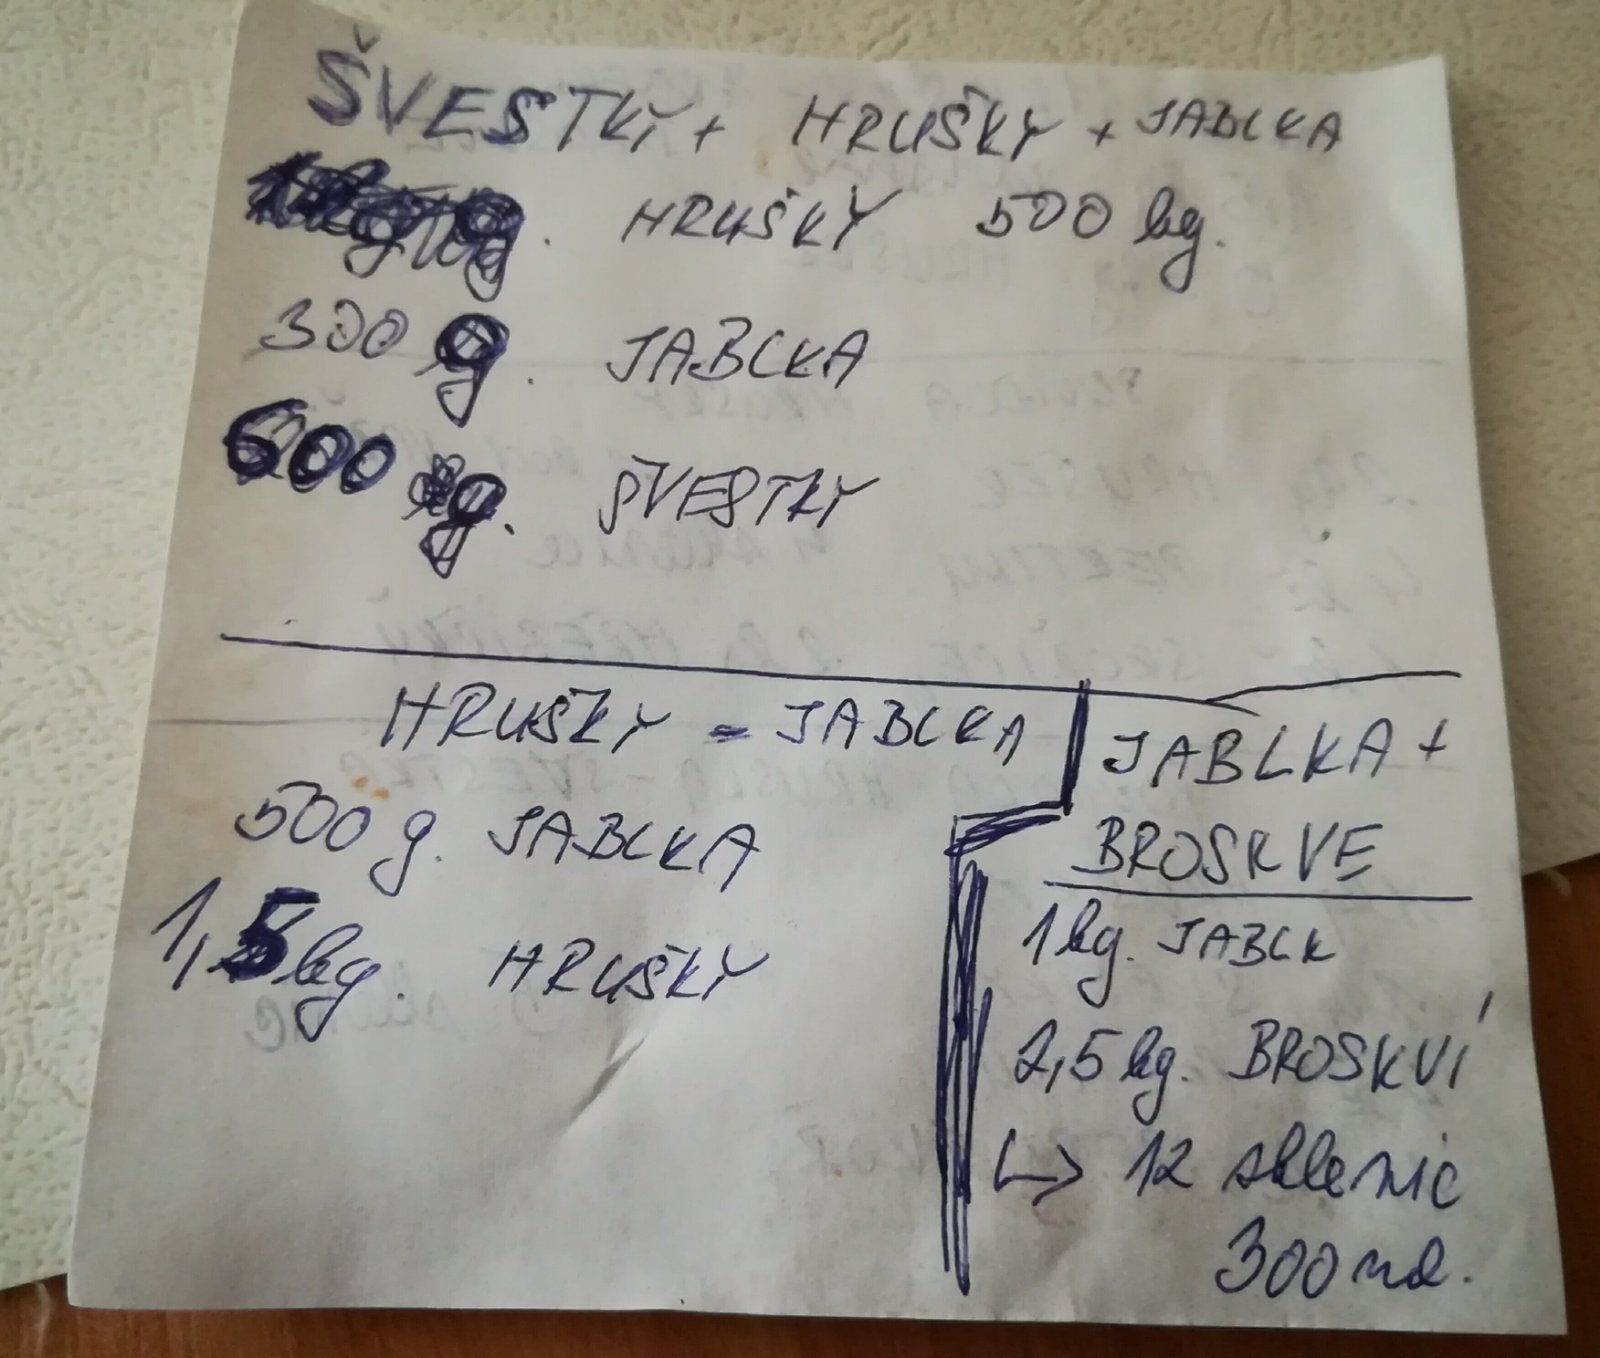 ŠVESTKY + HRUŠKY + JABLKA
HRUŠKY 500 kg.
300 g. JABLKA
600 g. ŠVESTKY
HRUŠKY - JABLKA
500 g. JABLKA
1,5 kg. HRUŠKY
JABLKA +
BROSKVE
1 kg. JABLK
2,5 kg. BROSKVÍ
↳ 12 sklenic
300 ml.